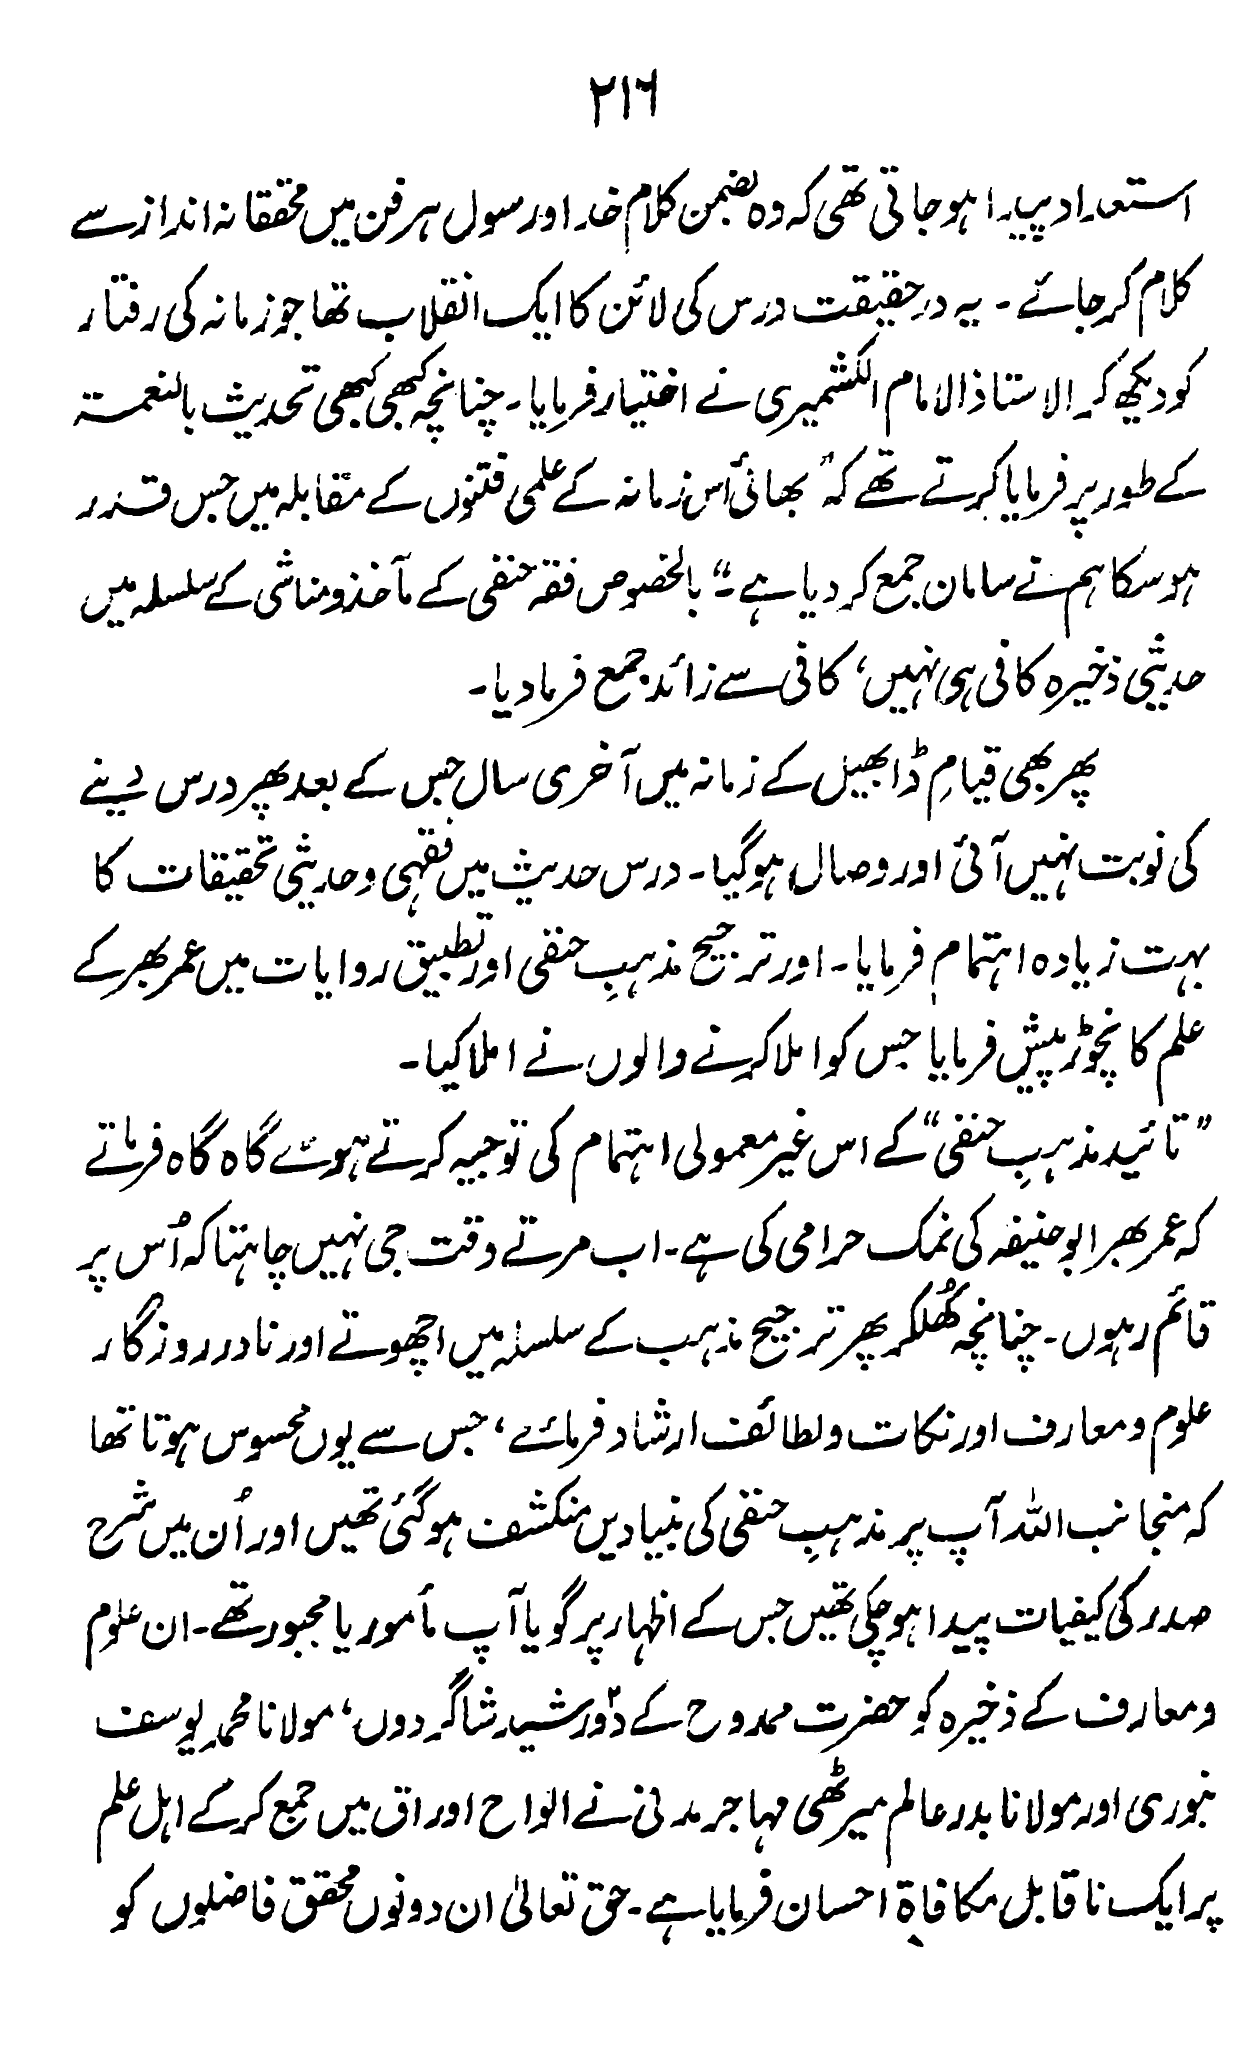 ۲۱۶
استعداد پیدا ہو جاتی تھی کہ وہ بضمن کلام خدا ور سول ہر فن میں محققانہ انداز سے
کلام کر جائے ۔ یہ در حقیقت درس کی لائن کا ایک انقلاب تھا جو زمانہ کی رفتار
کو دیکھ کر الاستاذ الامام الکشمیری نے اختیار فرمایا ۔ چنانچہ کبھی کبھی تحدیث بالنعمۃ
کے طور پر فرمایا کرتے تھے کہ " بھائی اس زمانہ کے علمی فتنوں کے مقابلہ میں جس قدر
ہو سکا ہم نے سامان جمع کر دیا ہے ۔" بالخصوص فقہ حنفی کے مآخذ و مناشی کے سلسلہ میں
حدیثی ذخیرہ کافی ہی نہیں، کافی سے زائد جمع فرما دیا ۔
پھر بھی قیامِ ڈابھیل کے زمانہ میں آخری سال جس کے بعد پھر درس دینے
کی نوبت نہیں آئی اور وصال ہو گیا ۔ درس حدیث میں فقہی و حدیثی تحقیقات کا
بہت زیادہ اہتمام فرمایا ۔ اور ترجیح مذہبِ حنفی اور تطبیق روایات میں عمر بھر کے
علم کا نچوڑ پیش فرمایا جس کو املا کرنے والوں نے املا کیا ۔
" تائید مذہبِ حنفی " کے اس غیر معمولی اہتمام کی توجیہ کرتے ہوئے گاہ گاہ فرماتے
کہ عمر بھر ابو حنیفہ کی نمک حرامی کی ہے ۔ اب مرتے وقت جی نہیں چاہتا کہ اُس پر
قائم رہوں ۔ چنانچہ کُھلکر پھر ترجیح مذہب کے سلسلہ میں اچھوتے اور نادر روزگار
علوم و معارف اور نکات و لطائف ارشاد فرمائے، جس سے یوں محسوس ہوتا تھا
کہ منجانب اللہ آپ پر مذہبِ حنفی کی بنیادیں منکشف ہو گئی تھیں اور اُن میں شرح
صدر کی کیفیات پیدا ہو چکی تھیں جس کے اظہار پر گویا آپ مأمور یا مجبور تھے ۔ ان علوم
و معارف کے ذخیرہ کو حضرت ممدوح کے دو رشید شاگردوں، مولانا محمد یوسف
بنوری اور مولانا بدر عالم میرٹھی مہاجر مدنی نے الواح اوراق میں جمع کر کے اہل علم
پر ایک ناقابل مکافاۃ احسان فرمایا ہے ۔ حق تعالیٰ ان دونوں محقق فاضلوں کو